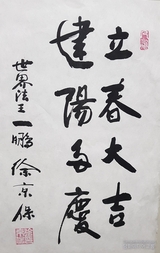 立春大吉
建陽多慶
世界法王一鵬徐京保